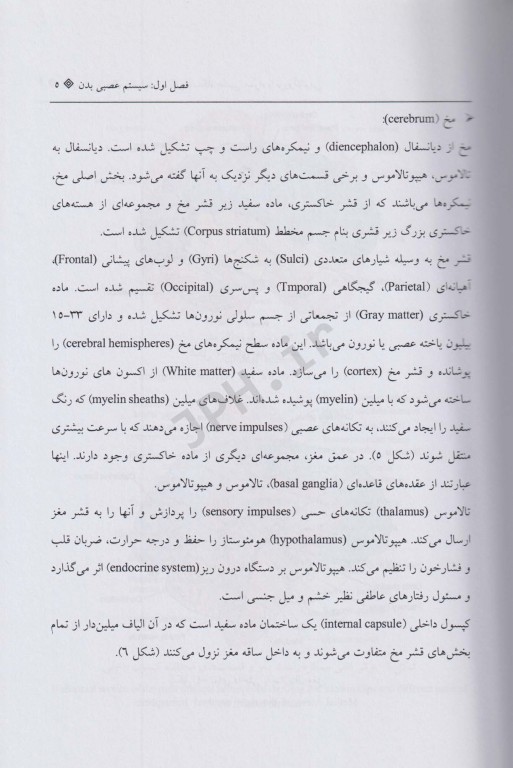 فصل اول: سیستم عصبی بدن ۵
مخ (cerebrum):
مخ از دیانسفال (diencephalon) و نیمکره‌های راست و چپ تشکیل شده است. دیانسفال به
تالاموس، هیپوتالاموس و برخی قسمت‌های دیگر نزدیک به آنها گفته می‌شود. بخش اصلی مخ،
نیمکره‌ها می‌باشند که از قشر خاکستری، ماده سفید زیر قشر مخ و مجموعه‌ای از هسته‌های
خاکستری بزرگ زیر قشری بنام جسم مخطط (Corpus striatum) تشکیل شده است.
قشر مخ به وسیله شیارهای متعددی (Sulci) به شکنج‌ها (Gyri) و لوب‌های پیشانی (Frontal)،
آهیانه‌ای (Parietal)، گیجگاهی (Tmporal) و پس‌سری (Occipital) تقسیم شده است. ماده
خاکستری (Gray matter) از تجمعاتی از جسم سلولی نورون‌ها تشکیل شده و دارای ۳۳-۱۵
بیلیون یاخته عصبی یا نورون می‌باشد. این ماده سطح نیمکره‌های مخ (cerebral hemispheres) را
پوشانده و قشر مخ (cortex) را می‌سازد. ماده سفید (White matter) از اکسون های نورون‌ها
ساخته می‌شود که با میلین (myelin) پوشیده شده‌اند. غلاف‌های میلین (myelin sheaths) که رنگ
سفید را ایجاد می‌کنند، به تکانه‌های عصبی (nerve impulses) اجازه می‌دهند که با سرعت بیشتری
منتقل شوند (شکل ۵). در عمق مغز، مجموعه‌ای دیگری از ماده خاکستری وجود دارند. اینها
عبارتند از عقده‌های قاعده‌ای (basal ganglia)، تالاموس و هیپوتالاموس.
تالاموس (thalamus) تکانه‌های حسی (sensory impulses) را پردازش و آنها را به قشر مغز
ارسال می‌کند. هیپوتالاموس (hypothalamus) هومئوستاز را حفظ و درجه حرارت، ضربان قلب
و فشارخون را تنظیم می‌کند. هیپوتالاموس بر دستگاه درون ریز(endocrine system) اثر می‌گذارد
و مسئول رفتارهای عاطفی نظیر خشم و میل جنسی است.
کپسول داخلی (internal capsule) یک ساختمان ماده سفید است که در آن الیاف میلین‌دار از تمام
بخش‌های قشر مخ متفاوت می‌شوند و به داخل ساقه مغز نزول می‌کنند (شکل ۶).
JPH.ir